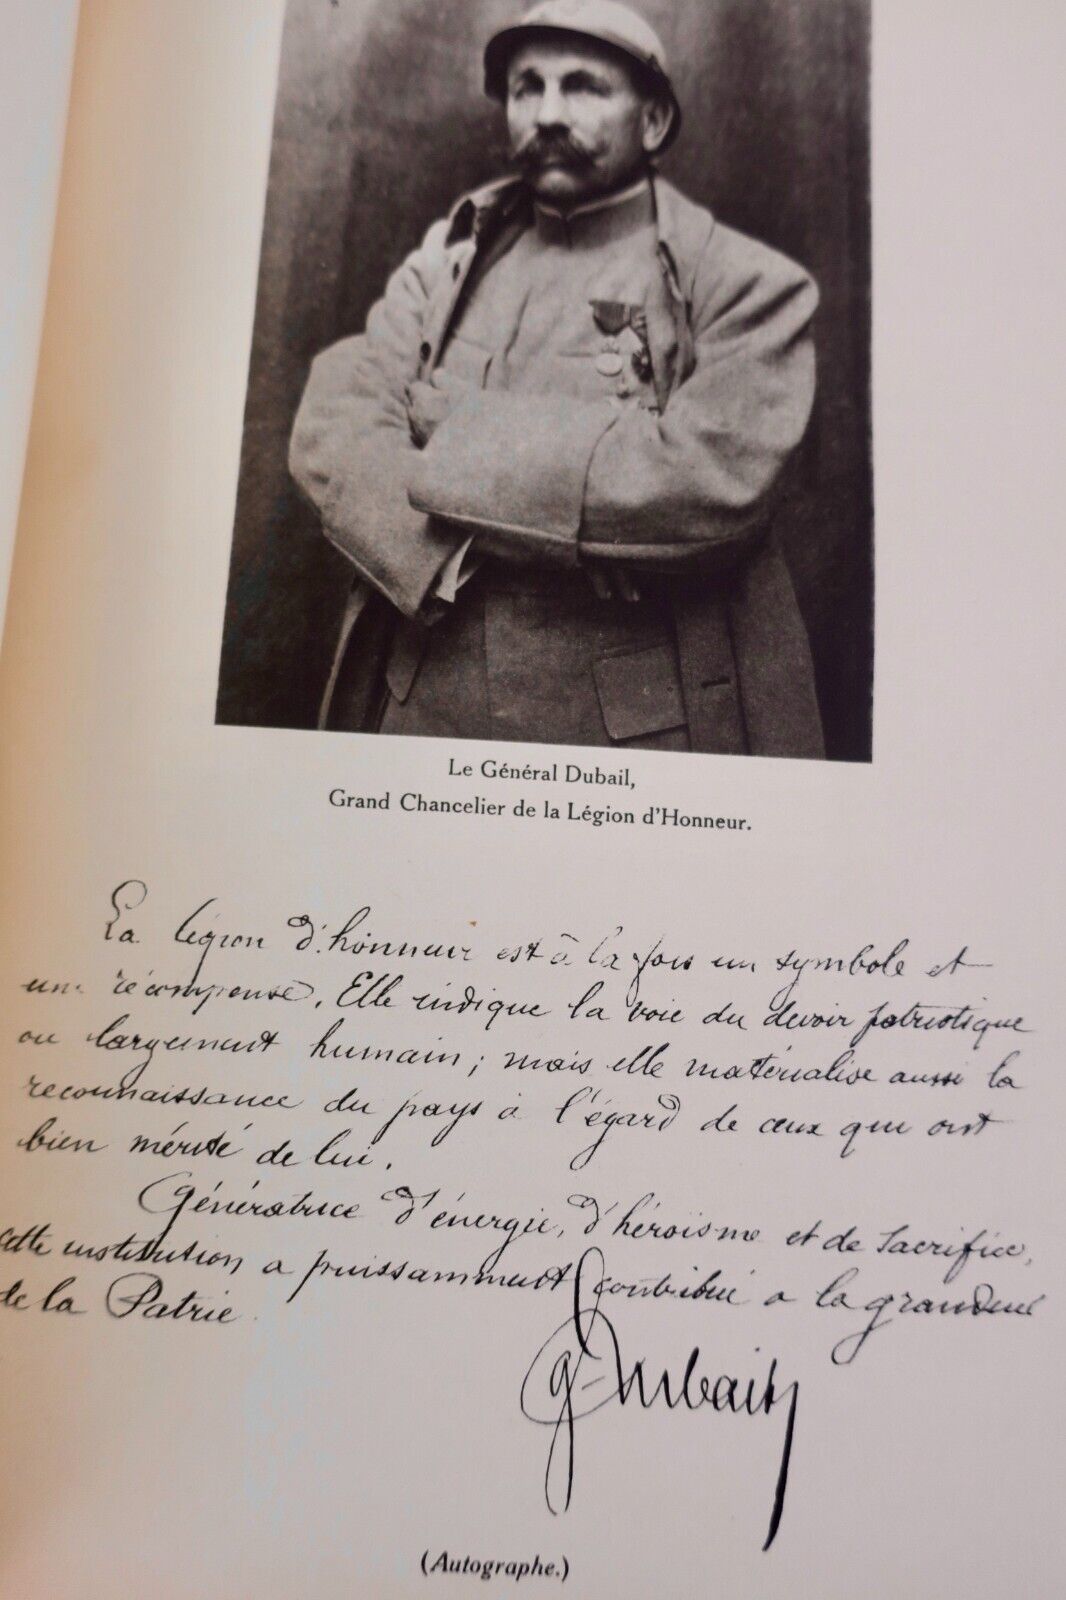 Le Général Dubail,
Grand Chancelier de la Légion d'Honneur.
La légion d'honneur est à la fois un symbole et
une récompense. Elle indique la voie du devoir patriotique
ou largement humain ; mais elle matérialise aussi la
reconnaissance du pays à l'égard de ceux qui ont
bien mérité de lui.
Génératrice d'énergie, d'héroïsme et de sacrifice,
cette institution a puissamment contribué a la grandeur
de la Patrie.
G. Dubail
(Autographe.)